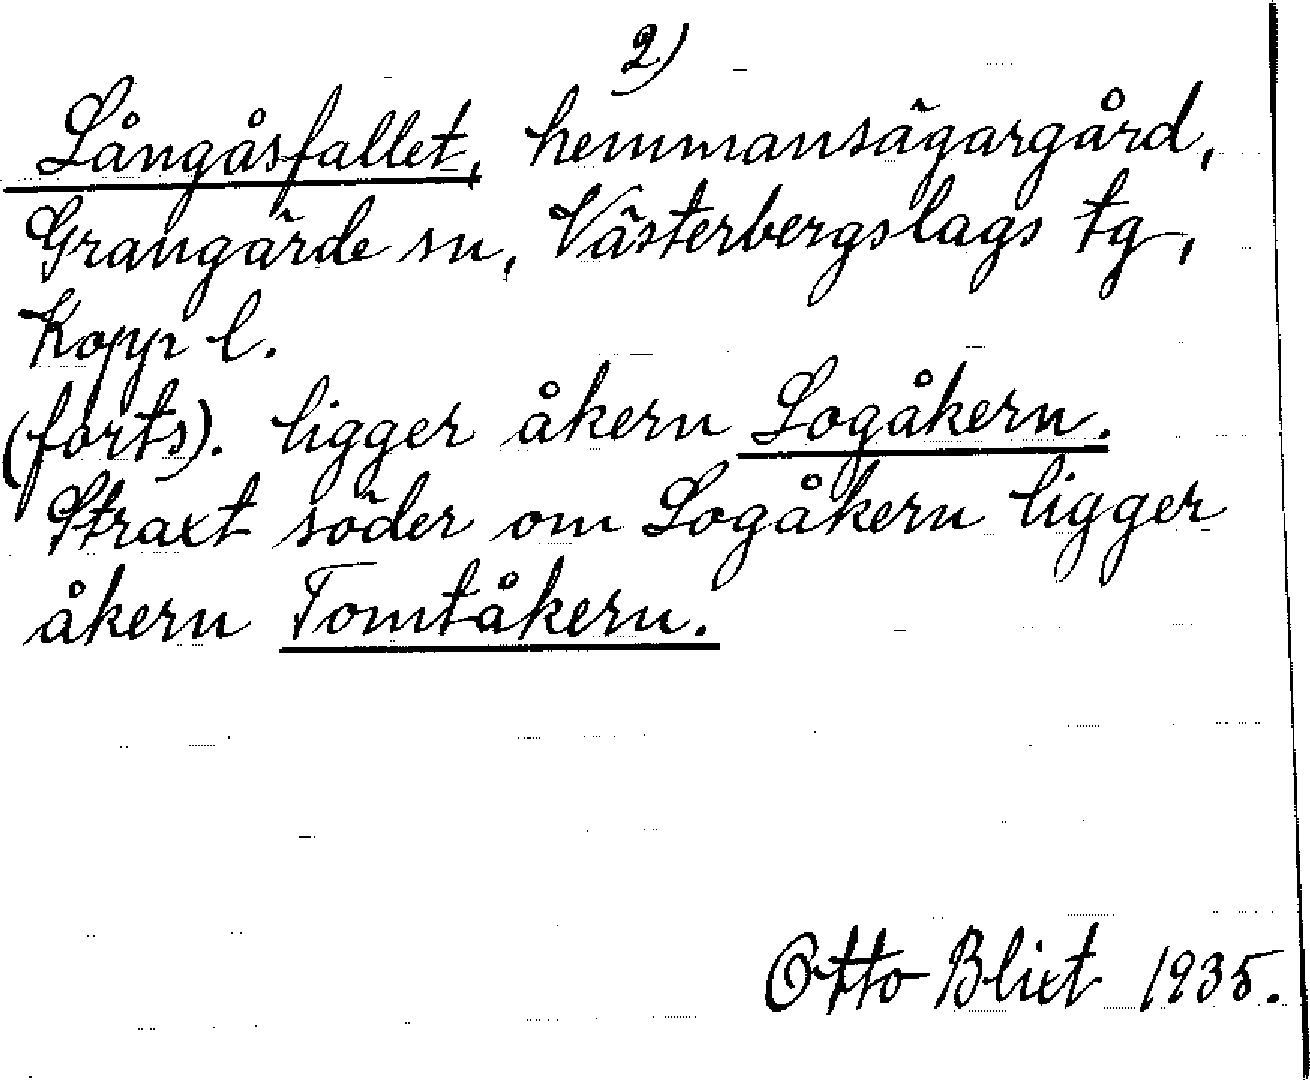 2)
Långåsfallet, hemmansägargård,
Grangärde sn, Västerbergslags tg,
Kopp l.
(forts). ligger åkern Logåkern.
Straxt söder om Logåkern ligger
åkern Tomtåkern.
Otto Blixt 1935.